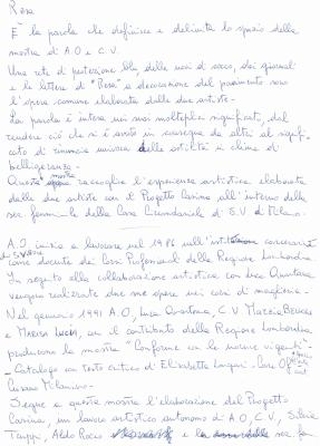 Resa
È la parola che definisce e delimita lo spazio della
mostra di A.O e C.V.
Una rete di protezione blu, delle noci di cocco, dei giornali
e le lettere di "Resa" a decorazione del pavimento sono
l'opera comune elaborata dalle due artiste -
La parola è intesa nei suoi molteplici significati, dal
rendere ciò che si è avuto in consegna da altri al signifi-
cato di rinuncia univoca delle ostilità in clima di
belligeranza -
Questa mostra raccoglie l'esperienza artistica elaborata
dalle due artiste con il Progetto Casina all'interno della
sez. femminile della Casa Circondariale di S.V. di Milano.
A.O. inizia a lavorare nel 1986 sull'istituzione carceraria
di S. Vittore
come docente dei Corsi Professionali della Regione Lombardia
In seguito alla collaborazione artistica con Luca Quartana
vengono realizzate due opere nei corsi di maglieria -
Nel gennaio 1991 A.O, Luca Quartana, C.V
e con il contributo della Regione Lombardia
producono la mostra "Conforme con le norme vigenti" -
- Catalogo con testo critico di Elisabetta Longari - Care Of
Cusano Milanino -
Segue a questa mostra l'elaborazione del Progetto
Casina, un lavoro artistico autonomo di A.O, C.V, Silvia
Truppi, Aldo Rocco e la sez. fem